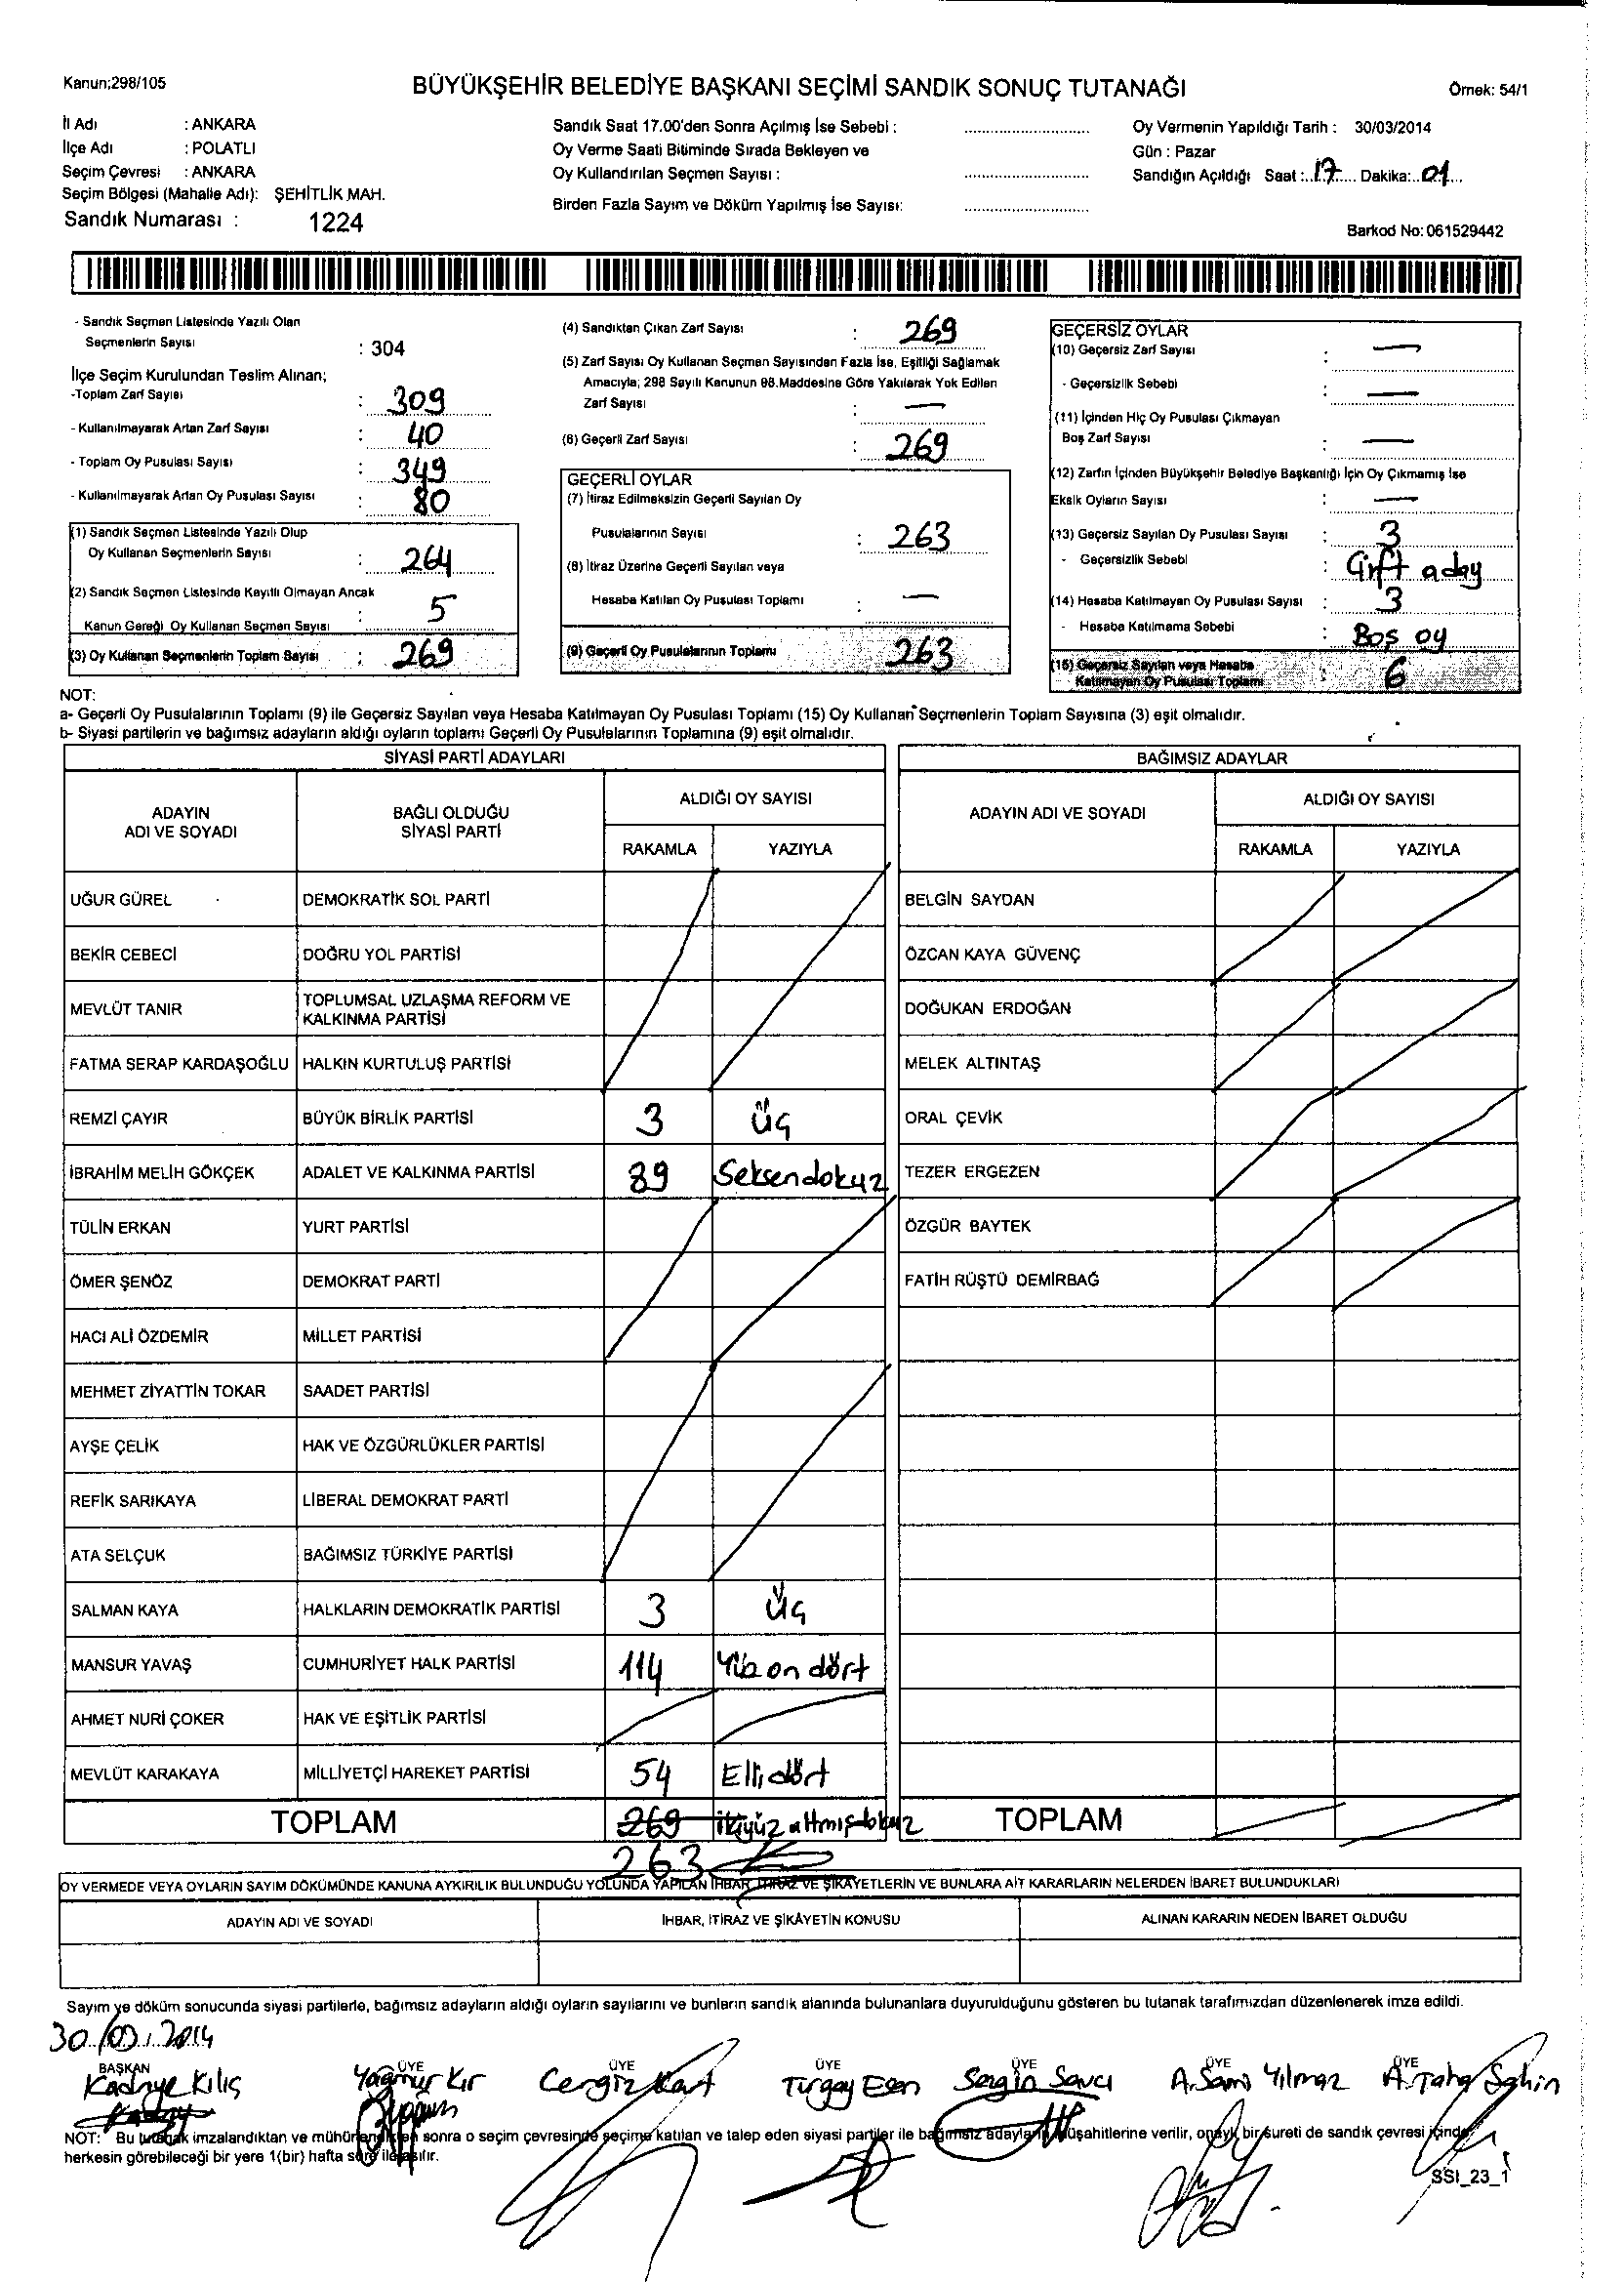 Kanun;298/105
BÜYÜKŞEHİR BELEDİYE BAŞKANI SEÇİMİ SANDIK SONUÇ TUTANAĞI
Örnek: 54/1
İl Adı : ANKARA
İlçe Adı : POLATLI
Seçim Çevresi : ANKARA
Seçim Bölgesi (Mahalle Adı): ŞEHİTLİK MAH.
Sandık Numarası : 1224
Sandık Saat 17.00'den Sonra Açılmış İse Sebebi :
Oy Verme Saati Bitiminde Sırada Bekleyen ve
Oy Kullandırılan Seçmen Sayısı :
Birden Fazla Sayım ve Döküm Yapılmış İse Sayısı:
Oy Vermenin Yapıldığı Tarih : 30/03/2014
Gün : Pazar
Sandığın Açıldığı Saat :..17.... Dakika:..01...
Barkod No: 061529442
- Sandık Seçmen Listesinde Yazılı Olan
Seçmenlerin Sayısı : 304
İlçe Seçim Kurulundan Teslim Alınan;
-Toplam Zarf Sayısı : 309
- Kullanılmayarak Artan Zarf Sayısı : 40
- Toplam Oy Pusulası Sayısı : 349
- Kullanılmayarak Artan Oy Pusulası Sayısı : 80
(1) Sandık Seçmen Listesinde Yazılı Olup
Oy Kullanan Seçmenlerin Sayısı : 264
(2) Sandık Seçmen Listesinde Kayıtlı Olmayan Ancak
Kanun Gereği Oy Kullanan Seçmen Sayısı : 5
(3) Oy Kullanan Seçmenlerin Toplam Sayısı : 269
(4) Sandıktan Çıkan Zarf Sayısı : 269
(5) Zarf Sayısı Oy Kullanan Seçmen Sayısından Fazla İse, Eşitliği Sağlamak
Amacıyla; 298 Sayılı Kanunun 98.Maddesine Göre Yakılarak Yok Edilen
Zarf Sayısı : —
(6) Geçerli Zarf Sayısı : 269
GEÇERLİ OYLAR
(7) İtiraz Edilmeksizin Geçerli Sayılan Oy
Pusulalarının Sayısı : 263
(8) İtiraz Üzerine Geçerli Sayılan veya
Hesaba Katılan Oy Pusulası Toplamı : —
(9) Geçerli Oy Pusulalarının Toplamı 263
GEÇERSİZ OYLAR
(10) Geçersiz Zarf Sayısı : —
- Geçersizlik Sebebi : —
(11) İçinden Hiç Oy Pusulası Çıkmayan
Boş Zarf Sayısı : —
(12) Zarfın İçinden Büyükşehir Belediye Başkanlığı İçin Oy Çıkmamış İse
Eksik Oyların Sayısı : —
(13) Geçersiz Sayılan Oy Pusulası Sayısı : 3
- Geçersizlik Sebebi : Çift aday
(14) Hesaba Katılmayan Oy Pusulası Sayısı : 3
- Hesaba Katılmama Sebebi : Boş oy
(15) Geçersiz Sayılan veya Hesaba
Katılmayan Oy Pusulası Toplamı : 6
NOT:
a- Geçerli Oy Pusulalarının Toplamı (9) ile Geçersiz Sayılan veya Hesaba Katılmayan Oy Pusulası Toplamı (15) Oy Kullanan Seçmenlerin Toplam Sayısına (3) eşit olmalıdır.
b- Siyasi partilerin ve bağımsız adayların aldığı oyların toplamı Geçerli Oy Pusulalarının Toplamına (9) eşit olmalıdır.
SİYASİ PARTİ ADAYLARI
ADAYIN ADI VE SOYADI
BAĞLI OLDUĞU SİYASİ PARTİ
ALDIĞI OY SAYISI
RAKAMLA YAZIYLA
UĞUR GÜREL DEMOKRATİK SOL PARTİ
BEKİR CEBECİ DOĞRU YOL PARTİSİ
MEVLÜT TANIR TOPLUMSAL UZLAŞMA REFORM VE KALKINMA PARTİSİ
FATMA SERAP KARDAŞOĞLU HALKIN KURTULUŞ PARTİSİ
REMZİ ÇAYIR BÜYÜK BİRLİK PARTİSİ 3 Üç
İBRAHİM MELİH GÖKÇEK ADALET VE KALKINMA PARTİSİ 89 Seksendokuz
TÜLİN ERKAN YURT PARTİSİ
ÖMER ŞENÖZ DEMOKRAT PARTİ
HACI ALİ ÖZDEMİR MİLLET PARTİSİ
MEHMET ZİYATTİN TOKAR SAADET PARTİSİ
AYŞE ÇELİK HAK VE ÖZGÜRLÜKLER PARTİSİ
REFİK SARIKAYA LİBERAL DEMOKRAT PARTİ
ATA SELÇUK BAĞIMSIZ TÜRKİYE PARTİSİ
SALMAN KAYA HALKLARIN DEMOKRATİK PARTİSİ 3 Üç
MANSUR YAVAŞ CUMHURİYET HALK PARTİSİ 114 Yüz on dört
AHMET NURİ ÇOKER HAK VE EŞİTLİK PARTİSİ
MEVLÜT KARAKAYA MİLLİYETÇİ HAREKET PARTİSİ 54 Elli dört
TOPLAM 269 ikiyüz altmışdokuz
263
BAĞIMSIZ ADAYLAR
ADAYIN ADI VE SOYADI
ALDIĞI OY SAYISI
RAKAMLA YAZIYLA
BELGİN SAYDAN
ÖZCAN KAYA GÜVENÇ
DOĞUKAN ERDOĞAN
MELEK ALTINTAŞ
ORAL ÇEVİK
TEZER ERGEZEN
ÖZGÜR BAYTEK
FATİH RÜŞTÜ DEMİRBAĞ
TOPLAM
OY VERMEDE VEYA OYLARIN SAYIM DÖKÜMÜNDE KANUNA AYKIRILIK BULUNDUĞU YOLUNDA YAPILAN İHBAR, İTİRAZ VE ŞİKAYETLERİN VE BUNLARA AİT KARARLARIN NELERDEN İBARET BULUNDUKLARI
ADAYIN ADI VE SOYADI
İHBAR, İTİRAZ VE ŞİKÂYETİN KONUSU
ALINAN KARARIN NEDEN İBARET OLDUĞU
Sayım ve döküm sonucunda siyasi partilerle, bağımsız adayların aldığı oyların sayılarını ve bunların sandık alanında bulunanlara duyurulduğunu gösteren bu tutanak tarafımızdan düzenlenerek imza edildi.
30/03/2014
BAŞKAN ÜYE ÜYE ÜYE ÜYE ÜYE ÜYE
Kadriye Kılıç Yağmur Kır Cengiz Kart Turgay Esen Sezgin Savcı A.Sami Yılmaz A.Taha Şahin
NOT: Bu tutanak imzalandıktan ve mühürlendikten sonra o seçim çevresinde seçime katılan ve talep eden siyasi partiler ile bağımsız adayların müşahitlerine verilir, onaylı bir sureti de sandık çevresi içinde
herkesin görebileceği bir yere 1(bir) hafta süre ile asılır.
SSI_23_1